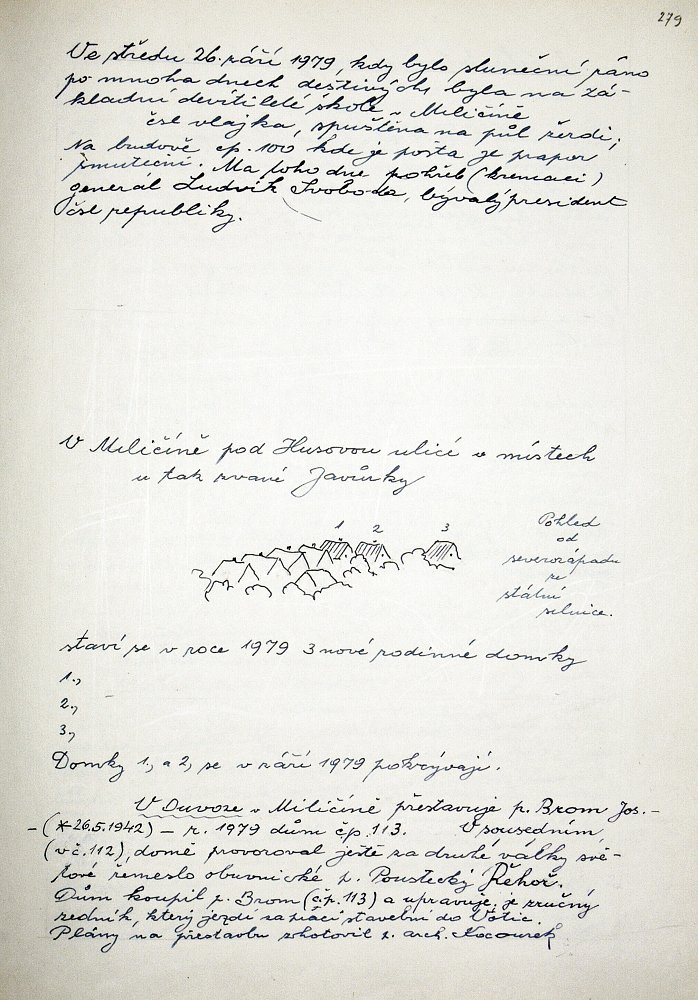 279
Ve středu 26. září 1979, kdy bylo sluneční ráno
po mnoha dnech deštivých, byla na zá-
kladní devítileté škole v Miličíně
čsl vlajka, spuštěna na půl žerdi,
Na budově čp. 100 kde je pošta je prapor
smuteční. Má toho dne pohřeb (kremaci)
generál Ludvík Svoboda, bývalý president
čsl republiky.
V Miličíně pod Husovou ulicí v místech
u tak zvané Javůrky
1 2 3
Pohled
od
severozápadu
ze
státní
silnice.
staví se v roce 1979 3 nové rodinné domky
1.,
2.,
3.,
Domky 1, a 2, se v září 1979 pokrývají.
V Duvoze v Miličíně přestavuje p. Brom Jos.-
-(*26.5.1942) – r. 1979 dům čp. 113. V sousedním
(v č. 112), domě provozoval ještě za druhé války svě-
tové řemeslo obuvnické p. Poustecký Řehoř.
Dům koupil p. Brom (č.p. 113) a upravuje, je zručný
zedník, který jezdí za prací stavební do Votic.
Plány na přestavbu zhotovil p. arch. Kocourek